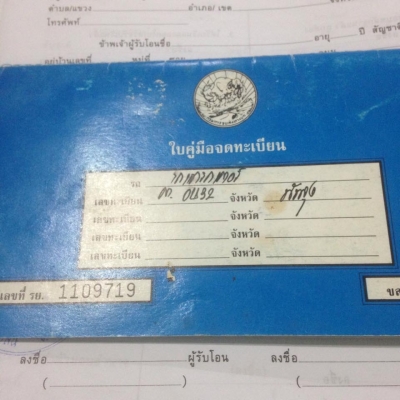 ตำบล/แขวง อำเภอ/เขต
โทรศัพท์
ข้าพเจ้าผู้รับโอนชื่อ อายุ ปี สัญชาติ
อยู่บ้านเลขที่ หมู่ที่
ใบคู่มือจดทะเบียน
รถ
เลขทะเบียน จังหวัด
เลขทะเบียน จังหวัด
เลขทะเบียน จังหวัด
เลขทะเบียน จังหวัด
เลขที่ รย. 1109719 ขส
ลงชื่อ ผู้รับโอน ลงชื่อ
( ) (